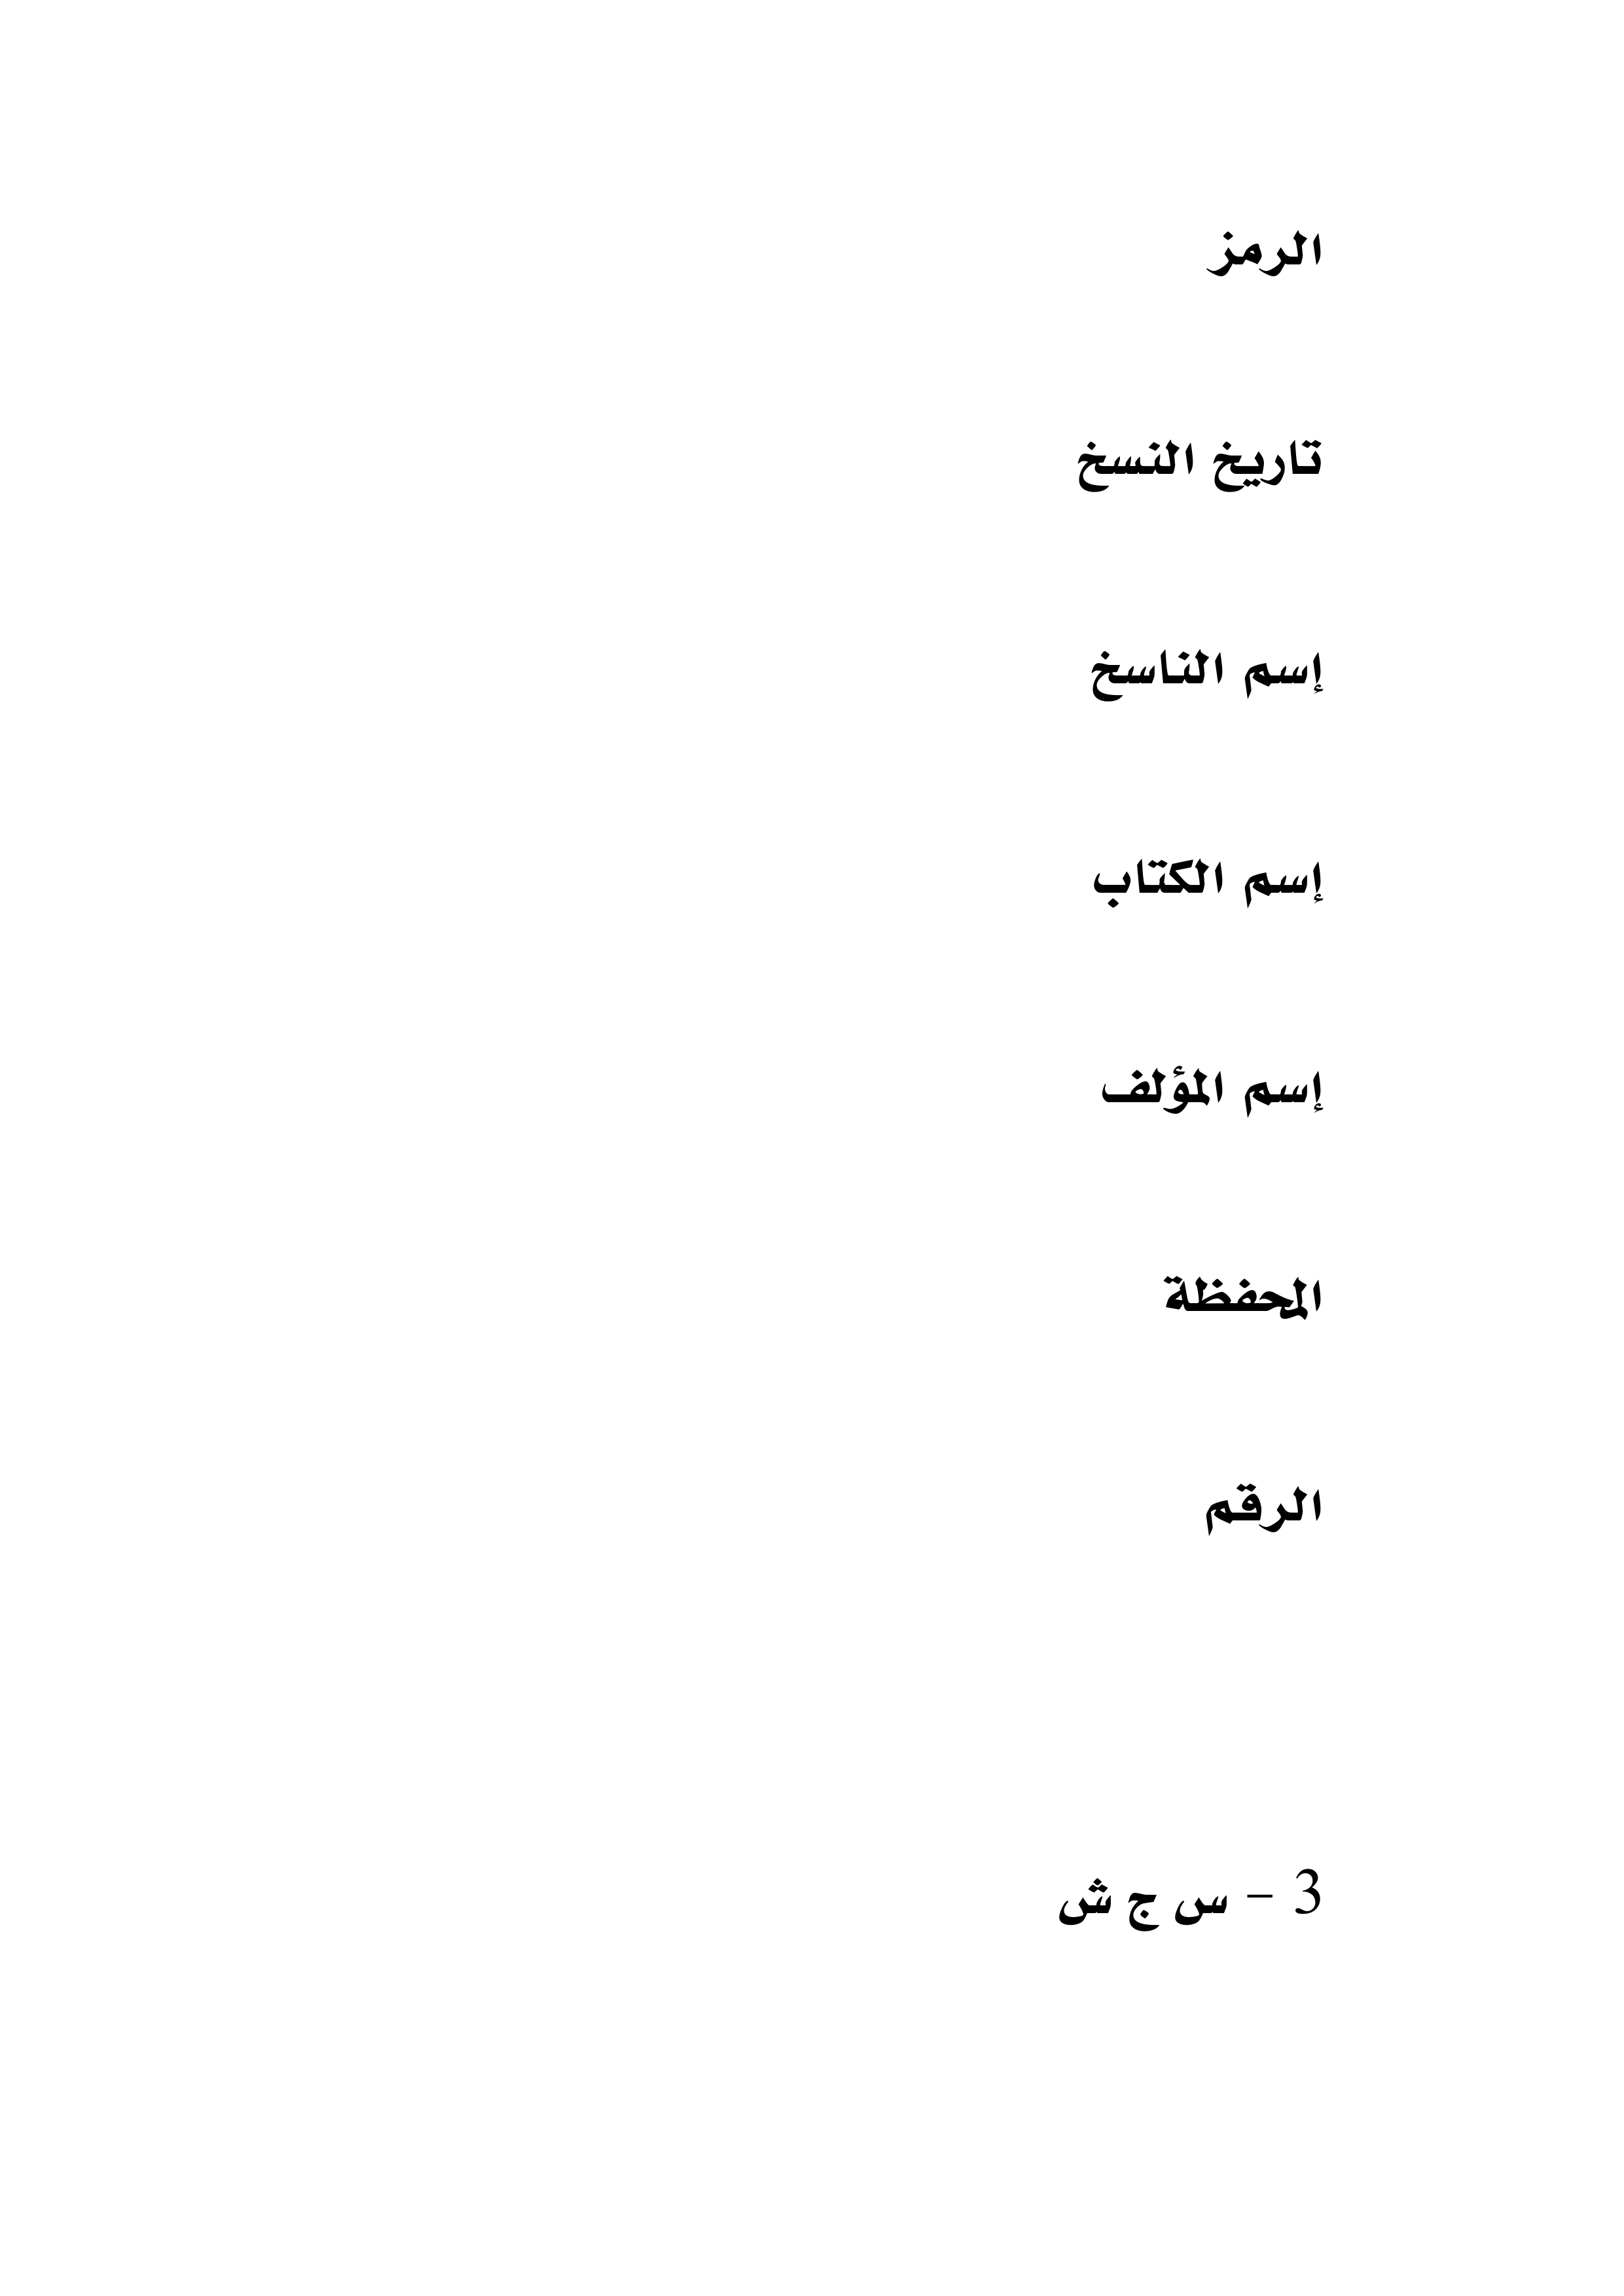 الرمز
تاريخ النسخ
إسم الناسخ
إسم الكتاب
إسم المؤلف
المحفظة
الرقم
3 – س ج ش